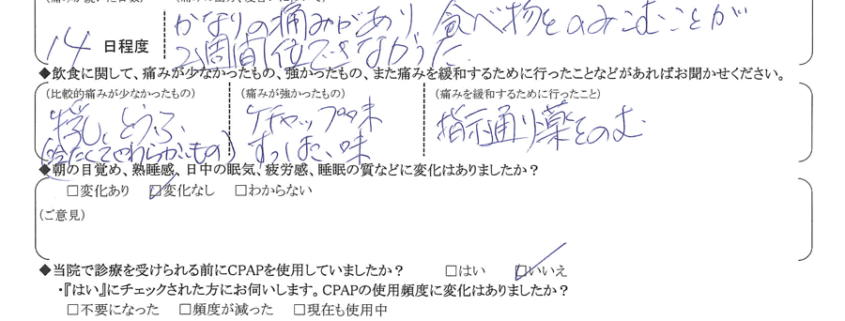 かなりの痛みがあり、食べ物をのみこむことが
14 日程度 2週間位できなかった
◆飲食に関して、痛みが少なかったもの、強かったもの、また痛みを緩和するために行ったことなどがあればお聞かせください。
(比較的痛みが少なかったもの) (痛みが強かったもの) (痛みを緩和するために行ったこと)
牛乳、とうふ、 ケチャップ味 指示通り薬をのむ
(冷たくてやわらかいもの) すっぱい味
◆朝の目覚め、熟睡感、日中の眠気、疲労感、睡眠の質などに変化はありましたか？
□変化あり ☑変化なし □わからない
(ご意見)
◆当院で診療を受けられる前にCPAPを使用していましたか？ □はい ☑いいえ
・『はい』にチェックされた方にお伺いします。CPAPの使用頻度に変化はありましたか？
□不要になった □頻度が減った □現在も使用中